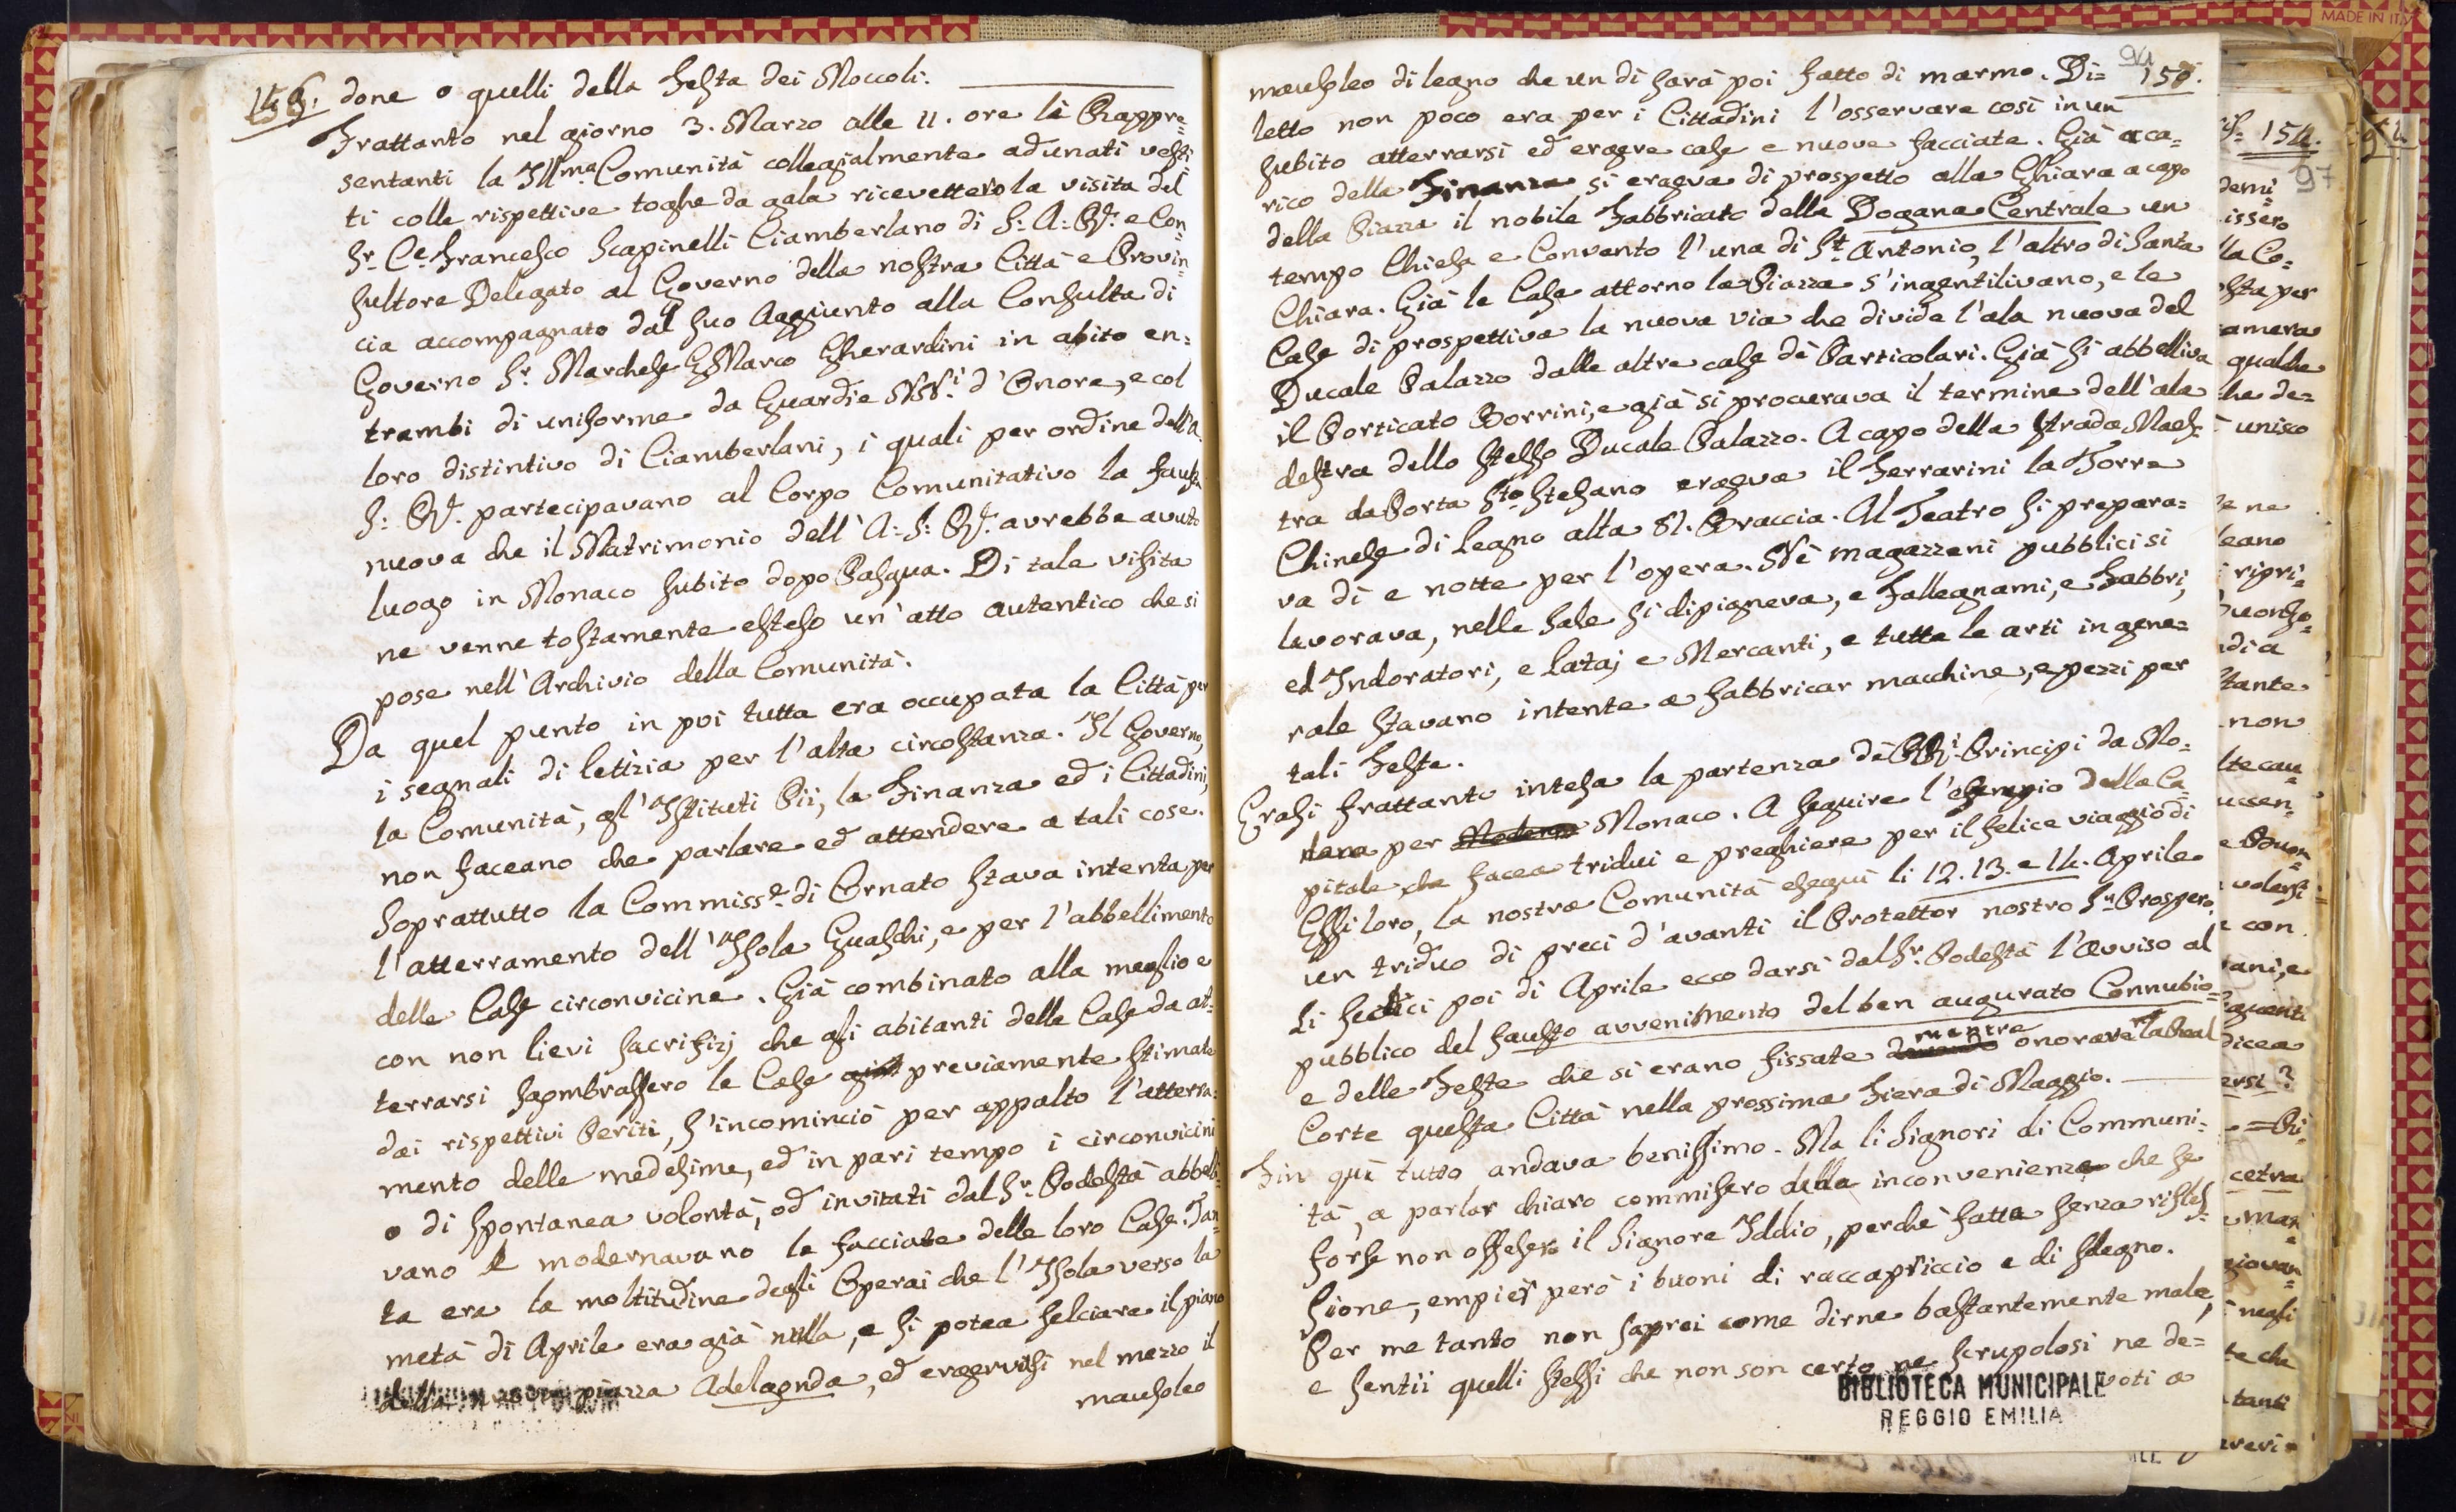 MADE IN ITA
149.
done o quelli della Festa dei Moccoli.
Frattanto nel giorno 3. Marzo alle 11. ore li Rappre=
sentanti la Illma Comunità collegialmente adunati vesti=
ti colle rispettive toghe da gala ricevettero la visita del
Sr. Ce. Francesco Scapinelli Ciamberlano di S: A: R. e Con=
sultore Delegato al Governo della nostra Città e Provin=
cia accompagnato dal suo Aggiunto alla Consulta di
Governo Sr. Marchese GMarco Gherardini in abito en=
trambi di uniforme da Guardie NNi. d'Onore, e col
loro distintivo di Ciamberlani, i quali per ordine dell'A.
S: R. partecipavano al Corpo Comunitativo la fausta
nuova che il Matrimonio dell'A: S: R. avrebbe avuto
luogo in Monaco subito dopo Pasqua. Di tale visita
ne venne tostamente esteso un'atto autentico che si
pose nell'Archivio della Comunità.
Da quel punto in poi tutta era occupata la Città per
i segnali di letizia per l'alta circostanza. Il Governo,
la Comunità, gl'Istituti Pii, la Finanza ed i Cittadini,
non faceano che parlare ed attendere a tali cose.
Soprattutto la Commisse. di Ornato stava intenta per
l'atterramento dell'Isola Guaschi, e per l'abbellimento
delle Case circonvicine. Già combinato alla meglio e
con non lievi sacrifizj che gli abitanti delle Case da at=
terrarsi sgombrassero le Case già previamente stimate
dai rispettivi Periti, s'incominciò per appalto l'atterra=
mento delle medesime, ed in pari tempo i circonvicini
o di spontanea volontà, od invitati dal Sr. Podestà abbelli=
vano e modernavano le facciate delle loro Case. Tan=
ta era la moltitudine degli Operai che l'Isola verso la
metà di Aprile era già nulla, e si potea selciare il piano
della nuova piazza Adelgonda, ed ergervisi nel mezzo il
mausoleo
91
150.
mausoleo di legno che un dì sarà poi fatto di marmo. Di=
letto non poco era per i Cittadini l'osservare così in un
subito atterrarsi ed ergere case e nuove facciate. Già a ca=
rico della Finanza si ergeva di prospetto alla Ghiara a capo
della Piazza il nobile Fabbricato della Dogana Centrale un
tempo Chiesa e Convento l'una di St. Antonio, l'altro di Santa
Chiara. Già le Case attorno la Piazza s'ingentilivano, e le
Case di prospettiva la nuova via che divide l'ala nuova del
Ducale Palazzo dalle altre case de Particolari. Già si abbelliva
il Porticato Borrini, e già si procurava il termine dell'ala
destra dello stesso Ducale Palazzo. A capo della Strada Maes=
tra da Porta Sto. Stefano ergeva il Ferrarini la Torre
Chinese di legno alta 51. Braccia. Al Teatro si prepara=
va dì e notte per l'opera. Ne magazzeni pubblici si
lavorava, nelle Sale si dipigneva, e Fallegnami, e Fabbri,
ed Indoratori, e Lataj e Mercanti, e tutte le arti in gene=
rale stavano intente a fabbricar macchine, e pezzi per
tali Feste.
Erasi frattanto intesa la partenza de RRi. Principi da Mo=
dena per Modena Monaco. A seguire l'esempio della Ca=
pitale che facea tridui e preghiere per il felice viaggio di
Essi loro, la nostra Comunità eseguì li 12. 13. e 14. Aprile
un triduo di preci d'avanti il Protettor nostro Sn. Prospero.
Li sedici poi di Aprile ecco darsi dal Sr. Podestà l'avviso al
pubblico del fausto avvenimento del ben augurato Connubio=
e delle Feste che si erano fissate mentre onorava la Real
Corte questa Città nella prossima Fiera di Maggio.
Fin quì tutto andava benissimo. Ma li Signori di Communi=
tà, a parlar chiaro commisero delle inconvenienze che se
forse non offesero il Signore Iddio, perchè fatte senza rifles=
sione, empier però i buoni di raccapriccio e di sdegno.
Per me tanto non saprei come dirne bastantemente male,
e sentii quelli stessi che non son certo ne scrupolosi ne de=
voti a
BIBLIOTECA MUNICIPALE
REGGIO EMILIA
154.
97
demi=
issero
lla Co=
sta per
camera
qualche
che de=
unisco
ne
leano
ripri=
uonso=
dia
stante
non
lte cau=
ucen=
volersi
con
rani, e
quenti
dicea
ersi?
cetra
man=
giovan=
negli
te che
tanti